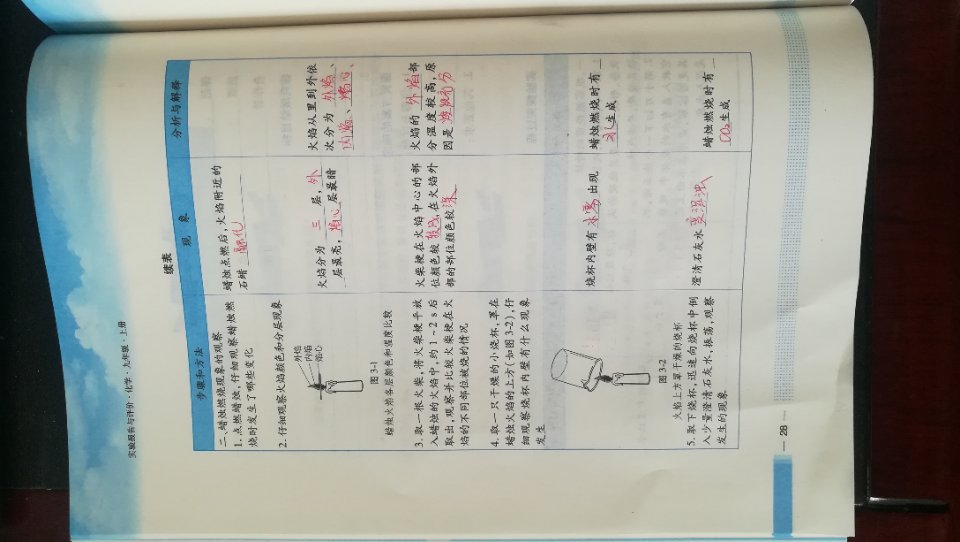 实验报告与评价·化学·九年级·上册
续表
步骤和方法
现 象
分析与解释
二、蜡烛燃烧现象的观察
1. 点燃蜡烛,仔细观察蜡烛燃
烧时发生了哪些变化
蜡烛点燃后,火焰附近的
石蜡 融化
2. 仔细观察火焰颜色和分层现象
外焰
内焰
焰心
图 3-1
蜡烛火焰各层颜色和温度比较
火焰分为 三 层,外
层最亮,焰心 层最暗
火焰从里到外依
次分为 外焰、
内焰、焰心、
3. 取一根火柴,将火柴梗平放
入蜡烛的火焰中,约 1~2 s 后
取出,观察并比较火柴梗在火
焰的不同部位被烧的情况
火柴梗在火焰中心的部
位颜色较 浅,在火焰外
部的部位颜色较 深
火焰的 外焰 部
分温度较高,原
因是 燃烧充分
4. 取一只干燥的小烧杯,罩在
蜡烛火焰的上方(如图 3-2),仔
细观察烧杯内壁有什么现象
发生
图 3-2
火焰上方罩干燥的烧杯
烧杯内壁有 水雾 出现
蜡烛燃烧时有
水 生成
5. 取下烧杯,迅速向烧杯中倒
入少量澄清石灰水,振荡,观察
发生的现象
澄清石灰水 变浑浊
蜡烛燃烧时有
CO₂ 生成
— 28 —